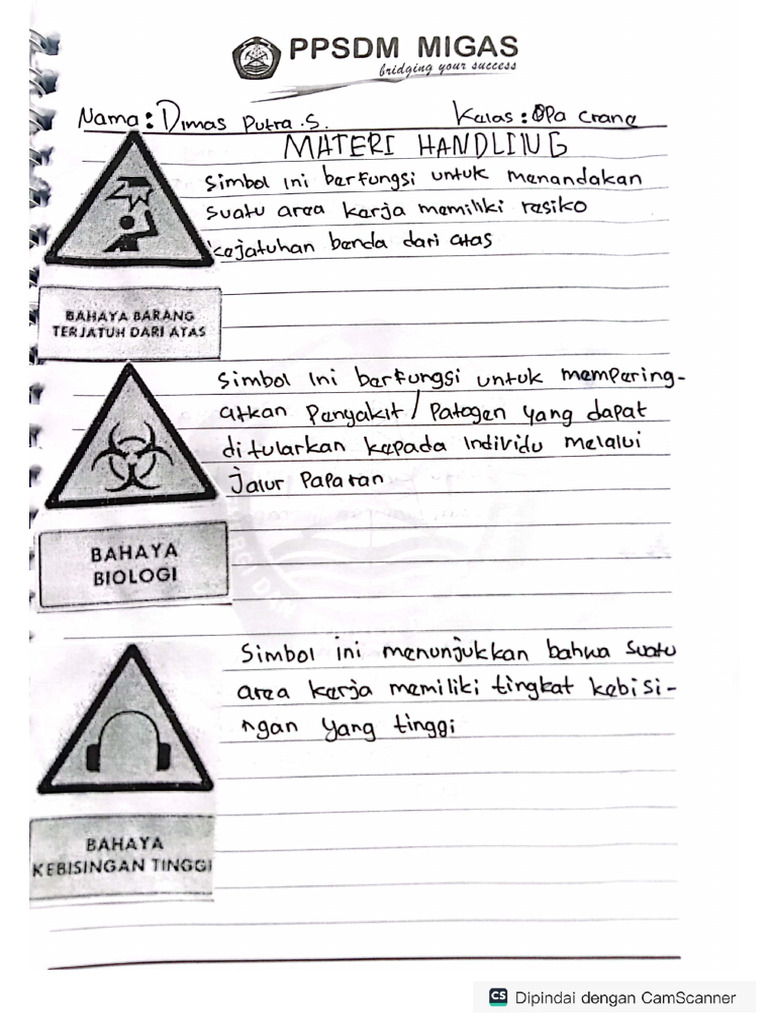 PPSDM MIGAS
bridging your success
Nama: Dimas Putra.S. Kelas: OPa Crane
MATERI HANDLING
Simbol ini berfungsi untuk menandakan
suatu area kerja memiliki resiko
kejatuhan benda dari atas
BAHAYA BARANG
TERJATUH DARI ATAS
Simbol ini berfungsi untuk mempering-
atkan Penyakit/Patogen yang dapat
ditularkan kepada Individu melalui
jalur Paparan
BAHAYA
BIOLOGI
Simbol ini menunjukkan bahwa suatu
area kerja memiliki tingkat kebisi-
ngan yang tinggi
BAHAYA
KEBISINGAN TINGGI
CS Dipindai dengan CamScanner